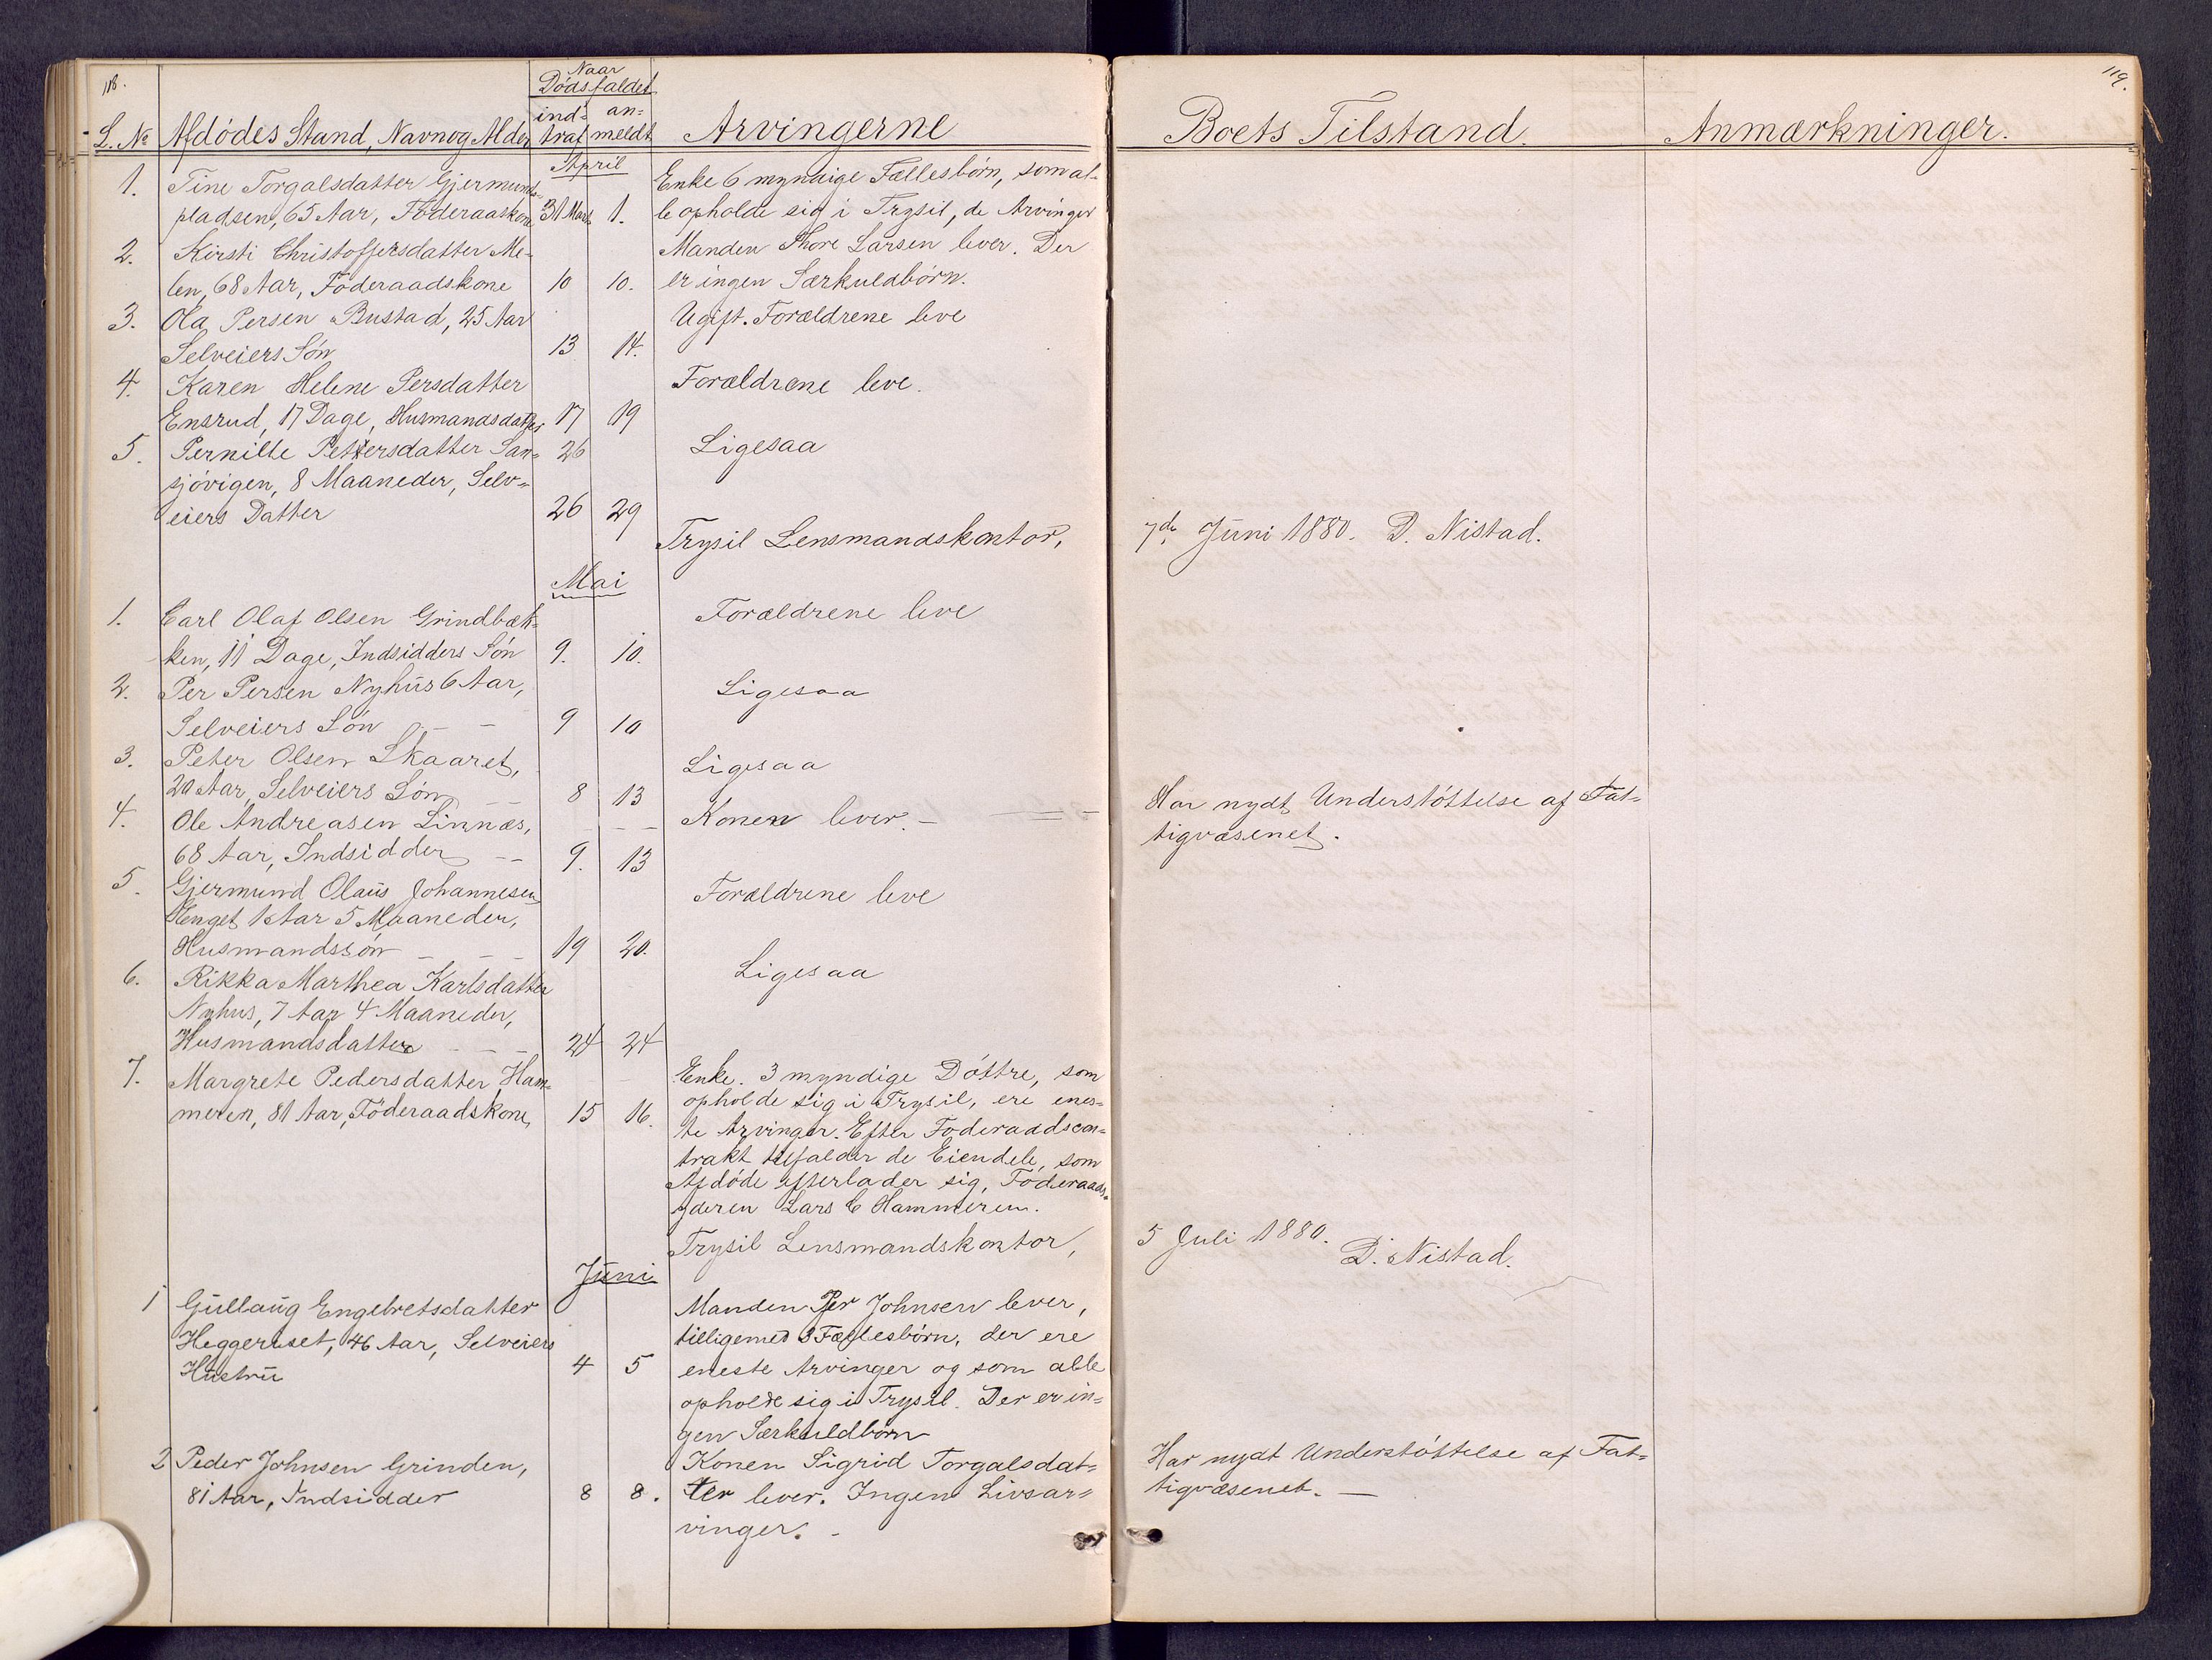 118.
Naar
Dødsfaldet
L. No Afdødes Stand, Navn og Alder ind= traf an= meldt Arvingerne
April
1. Tine Torgalsdatter Gjermunds= Enke 6 myndige Fællesbørn, som al=
pladsen, 65 Aar, Föderaadskone 31 Marts 1. le opholde sig i Trysil, de Arvinger
2. Kirsti Christoffersdatter Me= Manden Thore Larsen lever. Der
len, 68 Aar, Föderaadskone 10 10. er ingen Særkuldbørn.
3. Ola Persen Bustad, 25 Aar Ugift. Forældrene leve
Selveiers Søn 13 14.
4. Karen Helene Persdatter Forældrene leve.
Ensrud, 17 Dage, Husmandsdatter 17 19
5. Pernille Pettersdatter San= 26 Ligesaa
sjövigen, 8 Maaneder, Selv=
eiers Datter 26 29
Trysil Lensmandskontor,
Mai
1. Carl Olaf Olsen Grindbæk= Forældrene leve
ken, 11 Dage, Indsidders Søn 9. 10.
2. Per Persen Nyhus 6 Aar, Ligesaa
Selveiers Søn - - 9 10
3. Peter Olsen Skaaret, Ligesaa
20 Aar, Selveiers Søn - - 8 13
4. Ole Andreasen Linnæs, Konen lever. -
68 Aar, Indsidder - - 9. 13
5. Gjermund Olaus Johannesen Forældrene leve
Henget 1 Aar 5 Maaneder,
Husmandssøn - - - 19 20.
6. Rikka Marthea Karlsdatter Ligesaa
Nyhus, 7 Aar 4 Maaneder,
Husmandsdatter - - - 24 24
7. Margrete Pedersdatter Ham= Enke. 3 myndige Døttre, som
meren, 81 Aar, Föderaadskone, 15 16. opholde sig i Trysil, ere enes=
te Arvinger. Efter Foderaadscon=
trakt tilfalder de Eiendele, som
Afdøde efterlader sig, Foderaads=
yderen Lars C Hammeren.
Trysil Lensmandskontor,
Juni
1 Gullaug Engebretsdatter Manden Per Johnsen lever,
Heggeruset, 46 Aar, Selveiers tilligemed 3 Fællesbørn, der ere
Hustru 4 5 eneste Arvinger og som alle
opholde sig i Trysil. Der er in=
gen Særkuldbørn
2 Peder Johnsen Grinden, Konen Sigrid Torgalsdat=
81 Aar, Indsidder 8 8. ter lever. Ingen Livsar=
vinger. -
119.
Boets Tilstand. Anmærkninger.
7de Juni 1880. D. Nistad.
Har nydt Understøttelse af Fat=
tigvæsenet.
5 Juli 1880.
D. Nistad.
Har nydt Understøttelse af Fat=
tigvæsenet. -